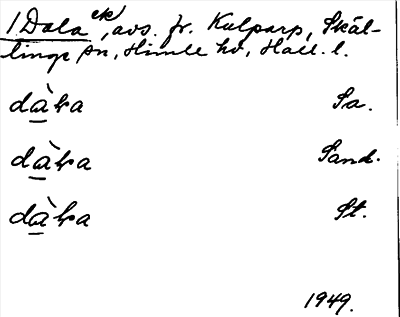 1 Dala ek, avs. fr. Kulparp, Skäl-
linge sn, Himle hd, Hall. l.
dàła Sa.
dàła Sand.
dàła St.
1949.